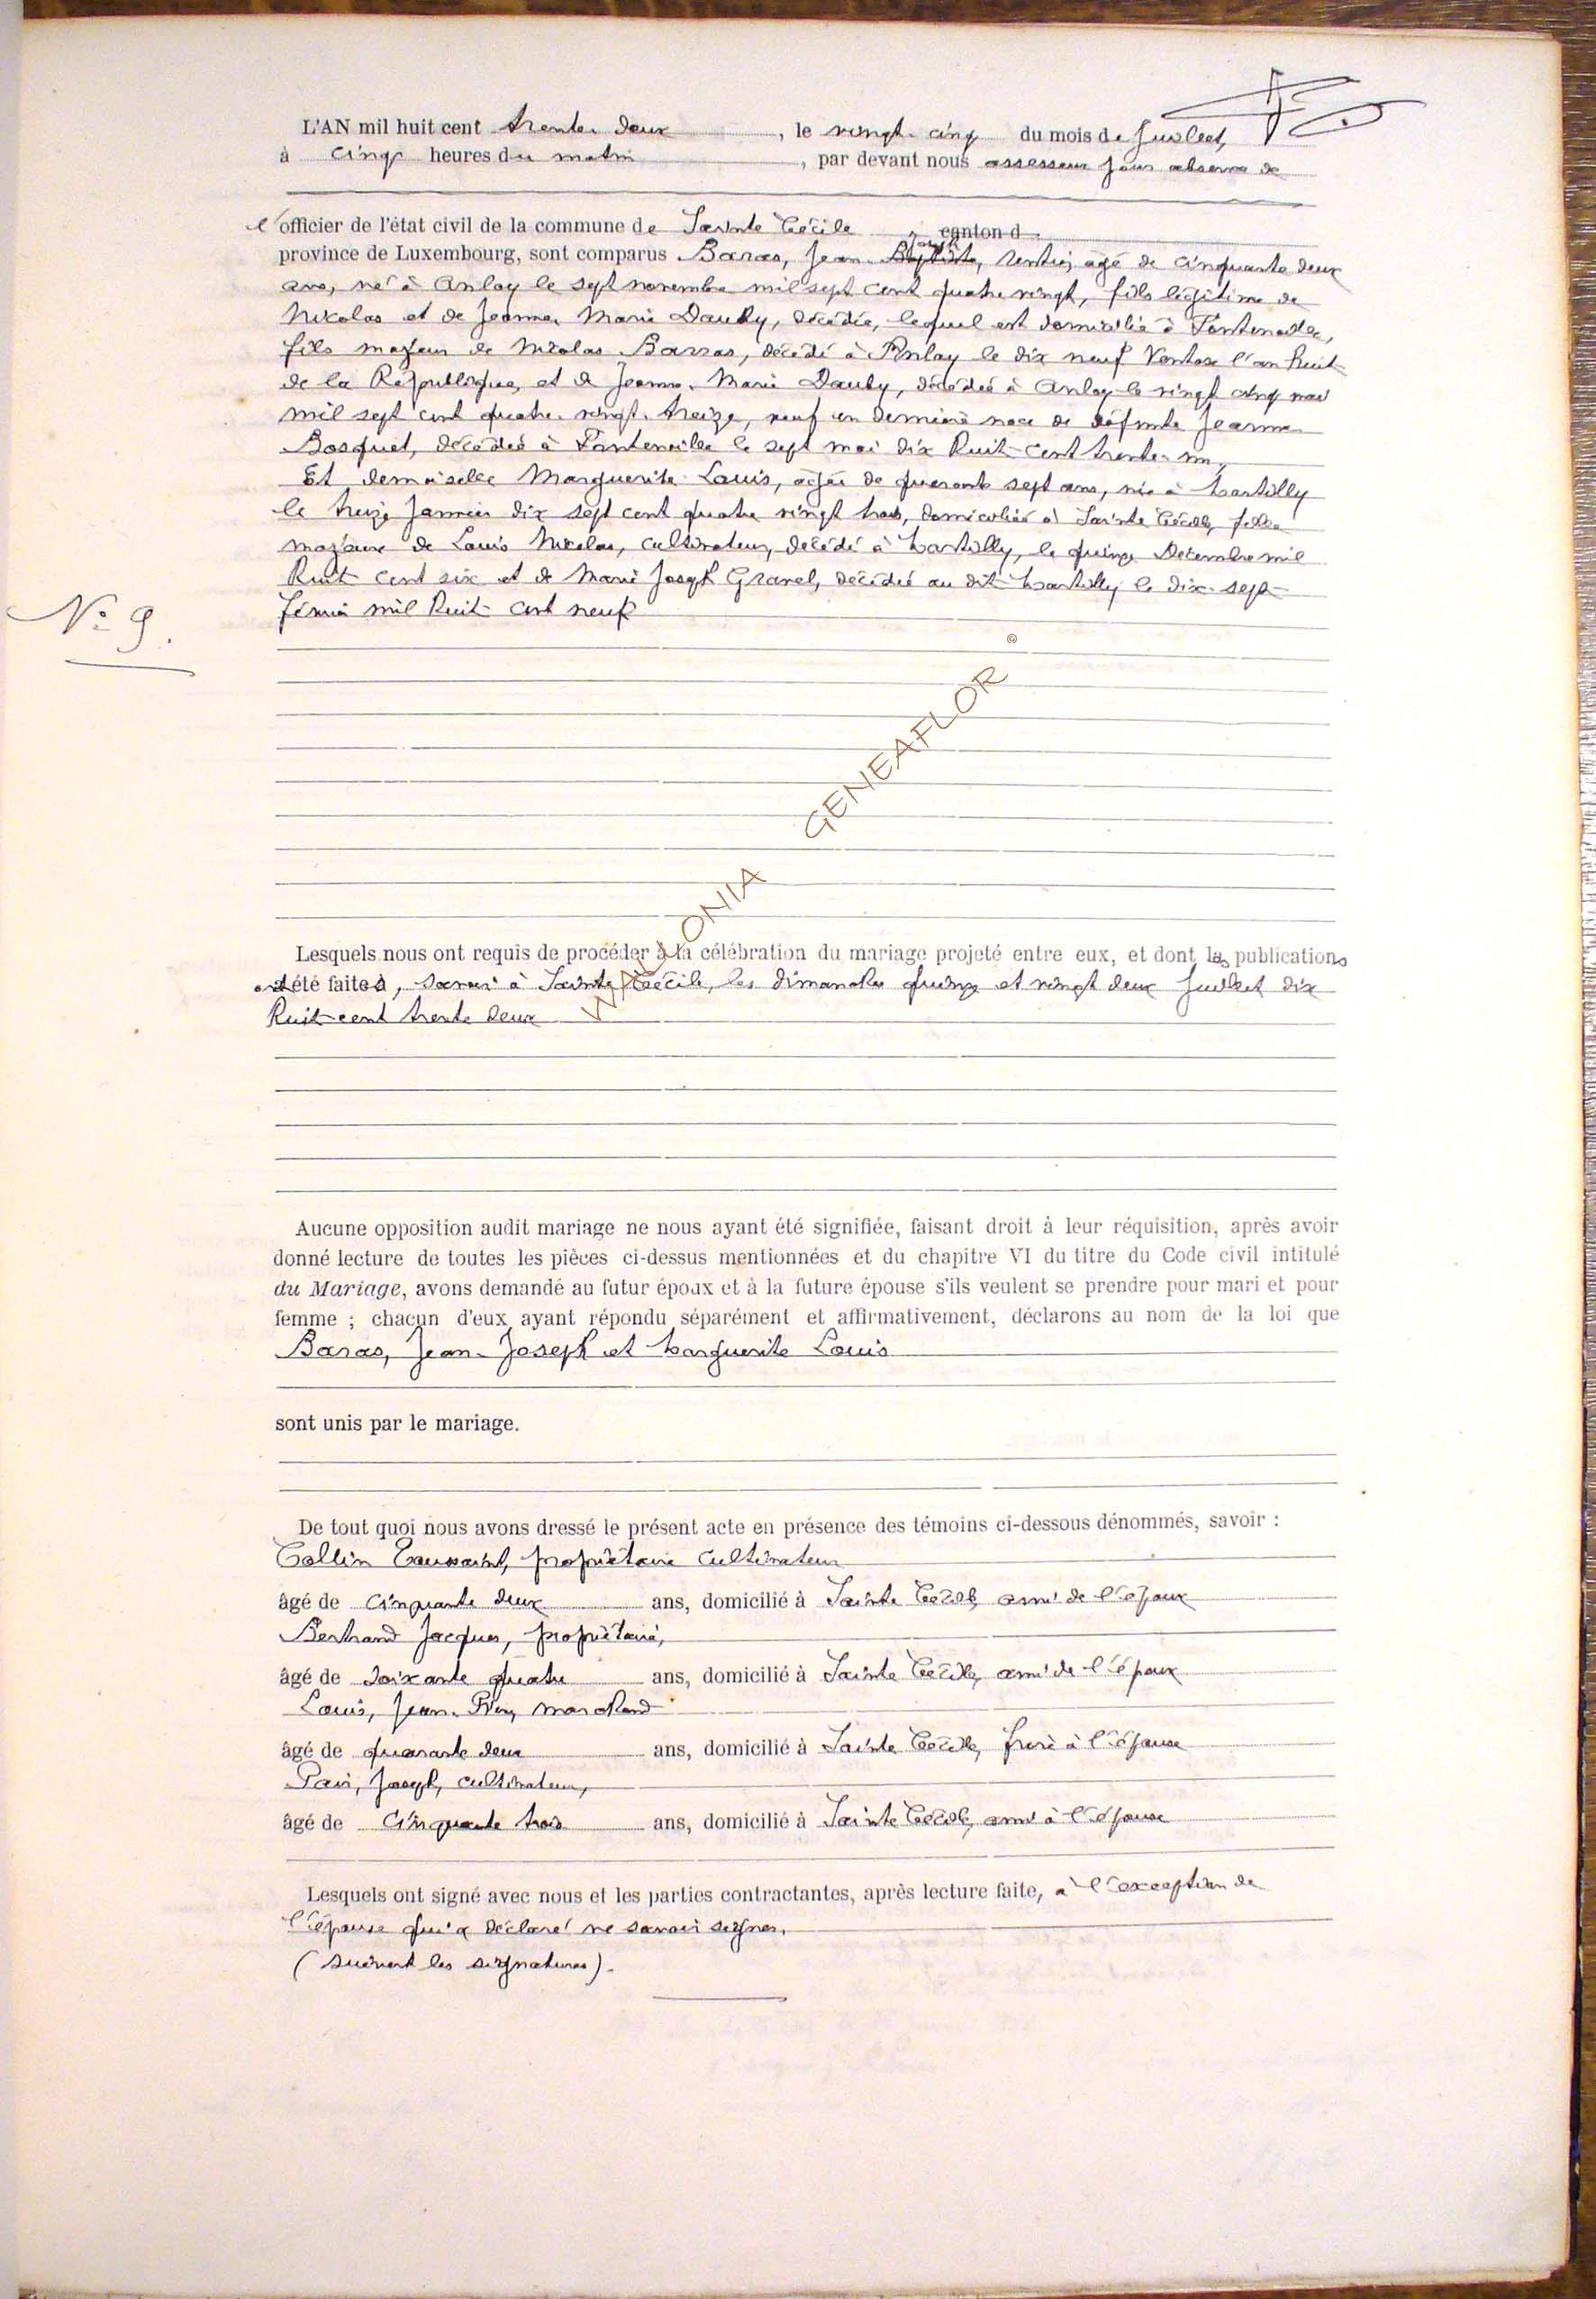 L'AN mil huit cent trente deux, le vingt-cinq du mois de Juillet,
à cinq heures du matin, par devant nous assesseur pour absence de
l'officier de l'état civil de la commune de Sainte Cécile, canton d
province de Luxembourg, sont comparus Baras, Jean-Joseph, rentier, âgé de cinquante deux
ans, né à Anloy le sept novembre mil sept cent quatre vingt, fils légitime de
Nicolas et de Jeanne Marie Dauby, décédée, lequel est domicilié à Fontenoille,
fils majeur de Nicolas Barras, décédé à Anloy le dix neuf Ventose l'an huit
de la République, et de Jeanne-Marie Dauby, décédée à Anloy le vingt cinq mai
mil sept cent quatre-vingt-treize, veuf en dernière noce de défunte Jeanne
Bosquet, décédée à Fontenoille le sept mai dix huit cent trente-un,
Et demoiselle Marguerite Louis, âgée de quarante sept ans, née à Martilly
le treize Janvier dix sept cent quatre vingt trois, domiciliée à Sainte Cécile, fille
majeure de Louis Nicolas, cultivateur, décédé à Martilly, le quinze Décembre mil
huit cent six et de Marie Joseph Gravel, décédée au dit Martilly le dix-sept
février mil huit cent neuf
N° 9.
WALLONIA GENEAFLOR ©
Lesquels nous ont requis de procéder à la célébration du mariage projeté entre eux, et dont les publications
ont été faites, savoir à Sainte Cécile, les dimanches quinze et vingt deux Juillet dix
huit cent trente deux
Aucune opposition audit mariage ne nous ayant été signifiée, faisant droit à leur réquisition, après avoir
donné lecture de toutes les pièces ci-dessus mentionnées et du chapitre VI du titre du Code civil intitulé
du Mariage, avons demandé au futur époux et à la future épouse s'ils veulent se prendre pour mari et pour
femme ; chacun d'eux ayant répondu séparément et affirmativement, déclarons au nom de la loi que
Baras, Jean-Joseph et Marguerite Louis
sont unis par le mariage.
De tout quoi nous avons dressé le présent acte en présence des témoins ci-dessous dénommés, savoir :
Collin Toussaint, propriétaire cultivateur
âgé de cinquante deux ans, domicilié à Sainte Cécile, ami de l'époux
Bertrand Jacques, propriétaire,
âgé de soixante quatre ans, domicilié à Sainte Cécile, ami de l'époux
Louis, Jean- marchand
âgé de quarante deux ans, domicilié à Sainte Cécile, frère à l'épouse
Joseph, cultivateur,
âgé de cinquante trois ans, domicilié à Sainte Cécile, ami à l'épouse
Lesquels ont signé avec nous et les parties contractantes, après lecture faite, à l'exception de
l'épouse qui a déclaré ne savoir signer.
(suivent les signatures).